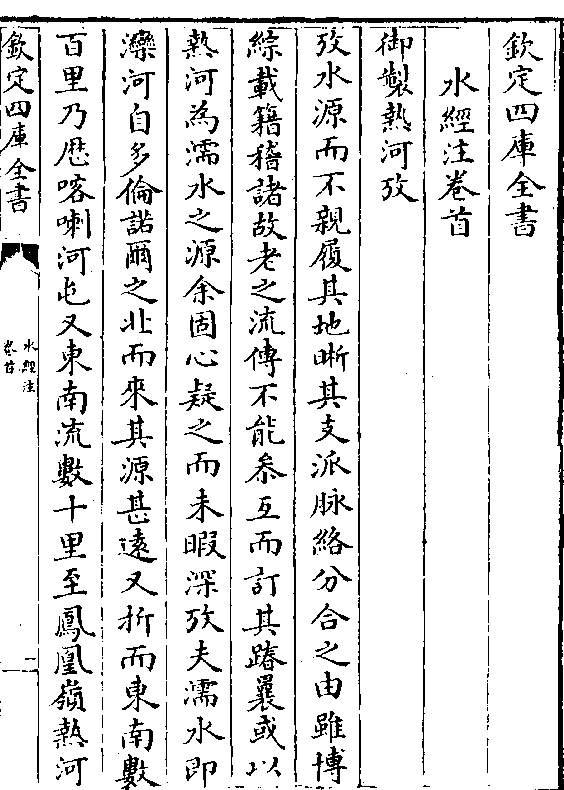 欽定四庫全書
水經注卷首
御製熱河攷
攷水源而不親履其地晰其支派脉絡分合之由雖博
綜載籍稽諸故老之流傳不能叅互而訂其踳羼或以
熱河為濡水之源余固心疑之而未暇深攷夫濡水即
灤河自多倫諾爾之北而來其源甚遠又折而東南數
百里乃厯喀喇河屯又東南流數十里至鳳凰嶺熱河
欽定四庫全書
水經注
卷首
二